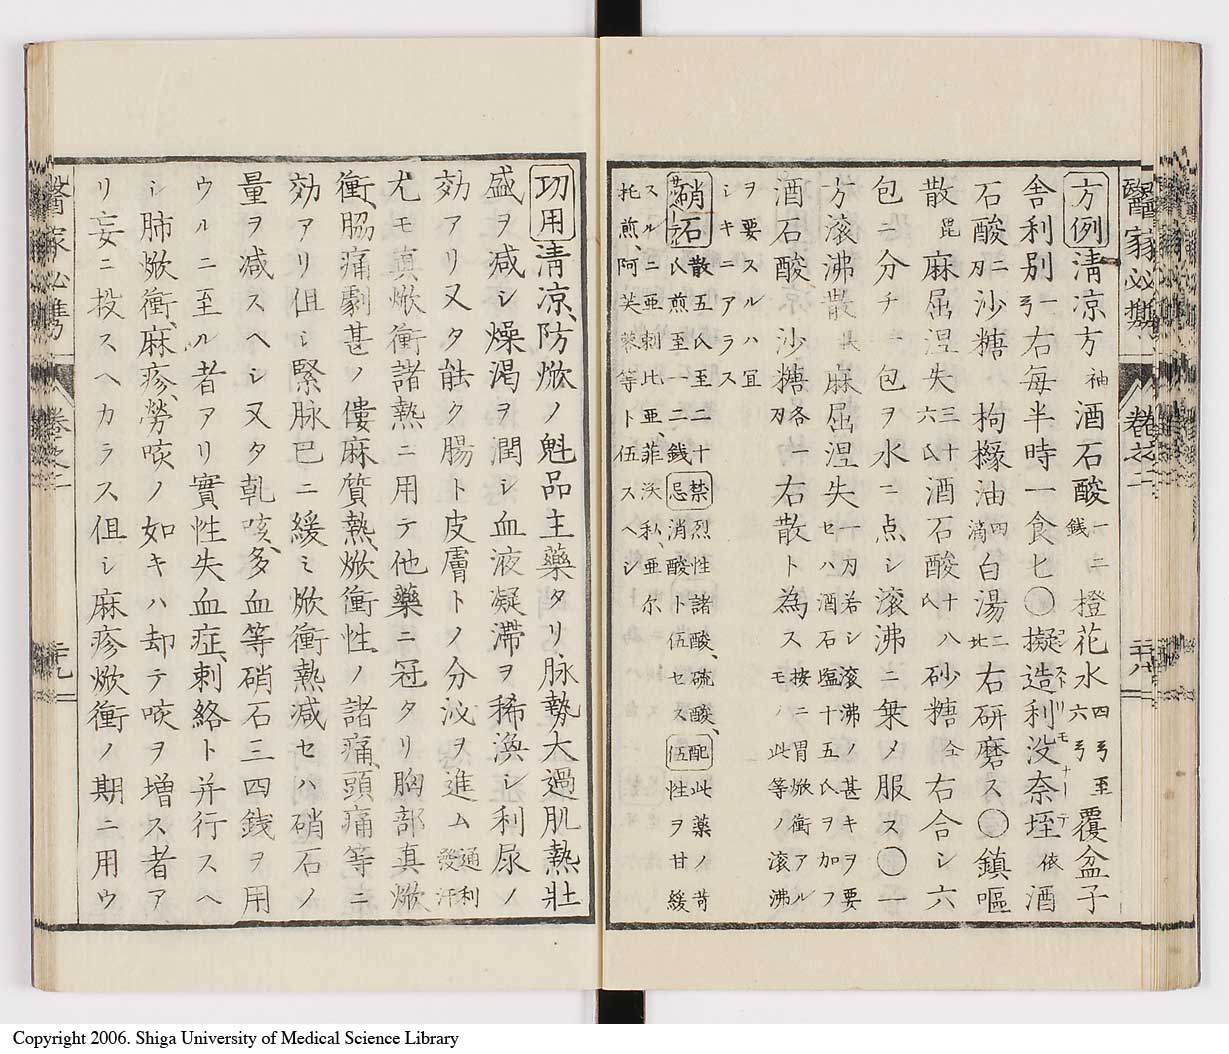 醫家必携 卷之二 二十八
方例 清凉方 袖 酒石酸 一二銭 橙花水 四弓至六弓 覆盆子
舎利別 一弓 右毎半時一食匕〇擬造利没奈垤 依 酒
石酸 二刄 沙糖 枸櫞油 四滴 白湯 二比 右研磨ス〇鎮嘔
散 毘 麻屈涅失 三十六氏 酒石酸 十八氏 砂糖 仝 右合シ六
包ニ分チ一包ヲ水ニ点シ滚沸ニ乗メ服ス〇一
方滚沸散 其 麻屈涅失 一刄 若シ滚沸ノ甚キヲ要セハ酒石塩十五氏ヲ加フ
酒石酸 沙糖 各一刄 右散ト為ス 按ニ胃焮衝アルモノハ此等ノ滚沸
ヲ要スルハ宜シキニアラス
硝石 散五氏至二十氏煎至一二銭 禁忌 烈性諸酸、硫酸、消酸ト伍セス 配伍 此薬ノ苛性ヲ甘緩
スルニ亜剌比亜、菲沃私、亜尓托煎、阿芙蓉等ト伍スヘシ
功用 清凉、防焮ノ魁品主藥タリ、脉勢大過肌熱壮
盛ヲ減シ燥渇ヲ潤シ血液凝滞ヲ稀渙シ利尿ノ
効アリ又タ能ク腸ト皮膚トノ分泌ヲ進ム 通利發汗
尤モ真焮衝諸熱ニ用テ他藥ニ冠タリ胸部真焮
衝、脇痛劇甚ノ僂麻質熱、焮衝性ノ諸痛、頭痛等ニ
効アリ但シ緊脉已ニ緩ミ焮衝熱減セハ硝石ノ
量ヲ减スヘシ又タ乾咳、多血等硝石三四銭ヲ用
ウルニ至ル者アリ實性失血症、刺絡ト并行スヘ
シ肺焮衝、麻疹、勞咳ノ如キハ却テ咳ヲ増ス者ア
リ妄ニ投スヘカラス但シ麻疹焮衝ノ期ニ用ウ
醫家必携 卷之二 二十九
Copyright 2006. Shiga University of Medical Science Library